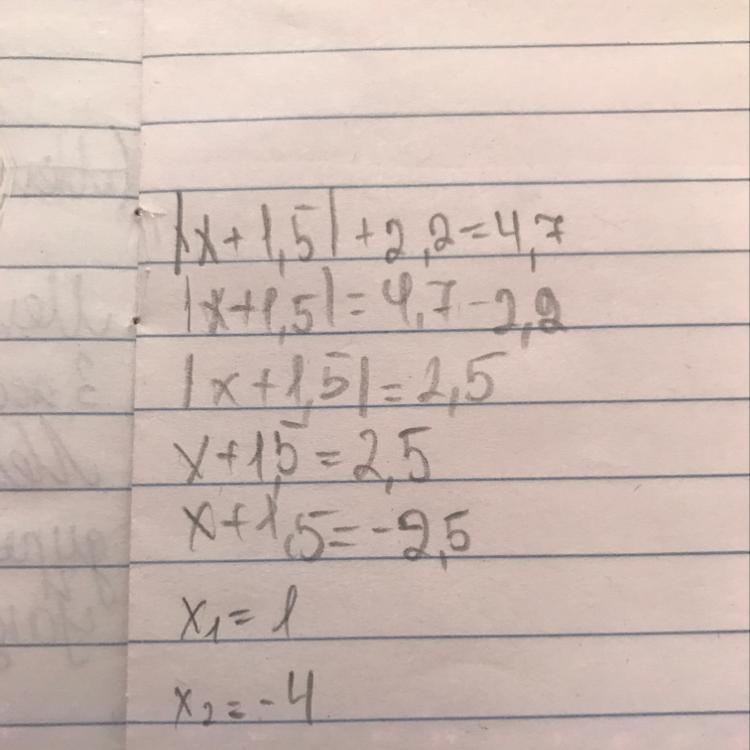 |x+1,5|+2,2=4,7
|x+1,5|=4,7-2,2
|x+1,5|=2,5
x+1,5=2,5
x+1,5=-2,5
x₁=1
x₂=-4